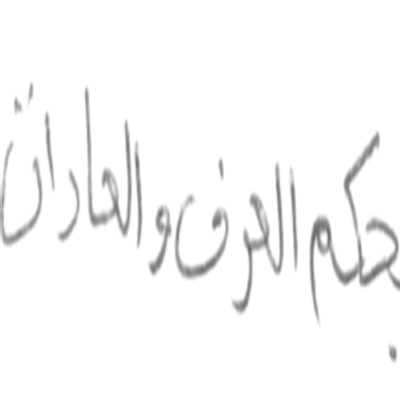 بحكم العرف والعادات